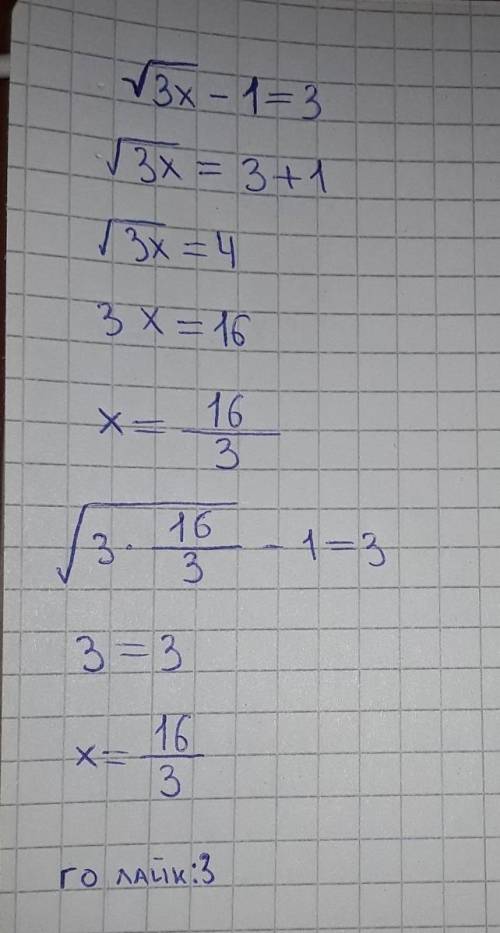 √3x - 1 = 3
√3x = 3 + 1
√3x = 4
3x = 16
x = 16/3
√3 · 16/3 - 1 = 3
3 = 3
x = 16/3
го лайк:3